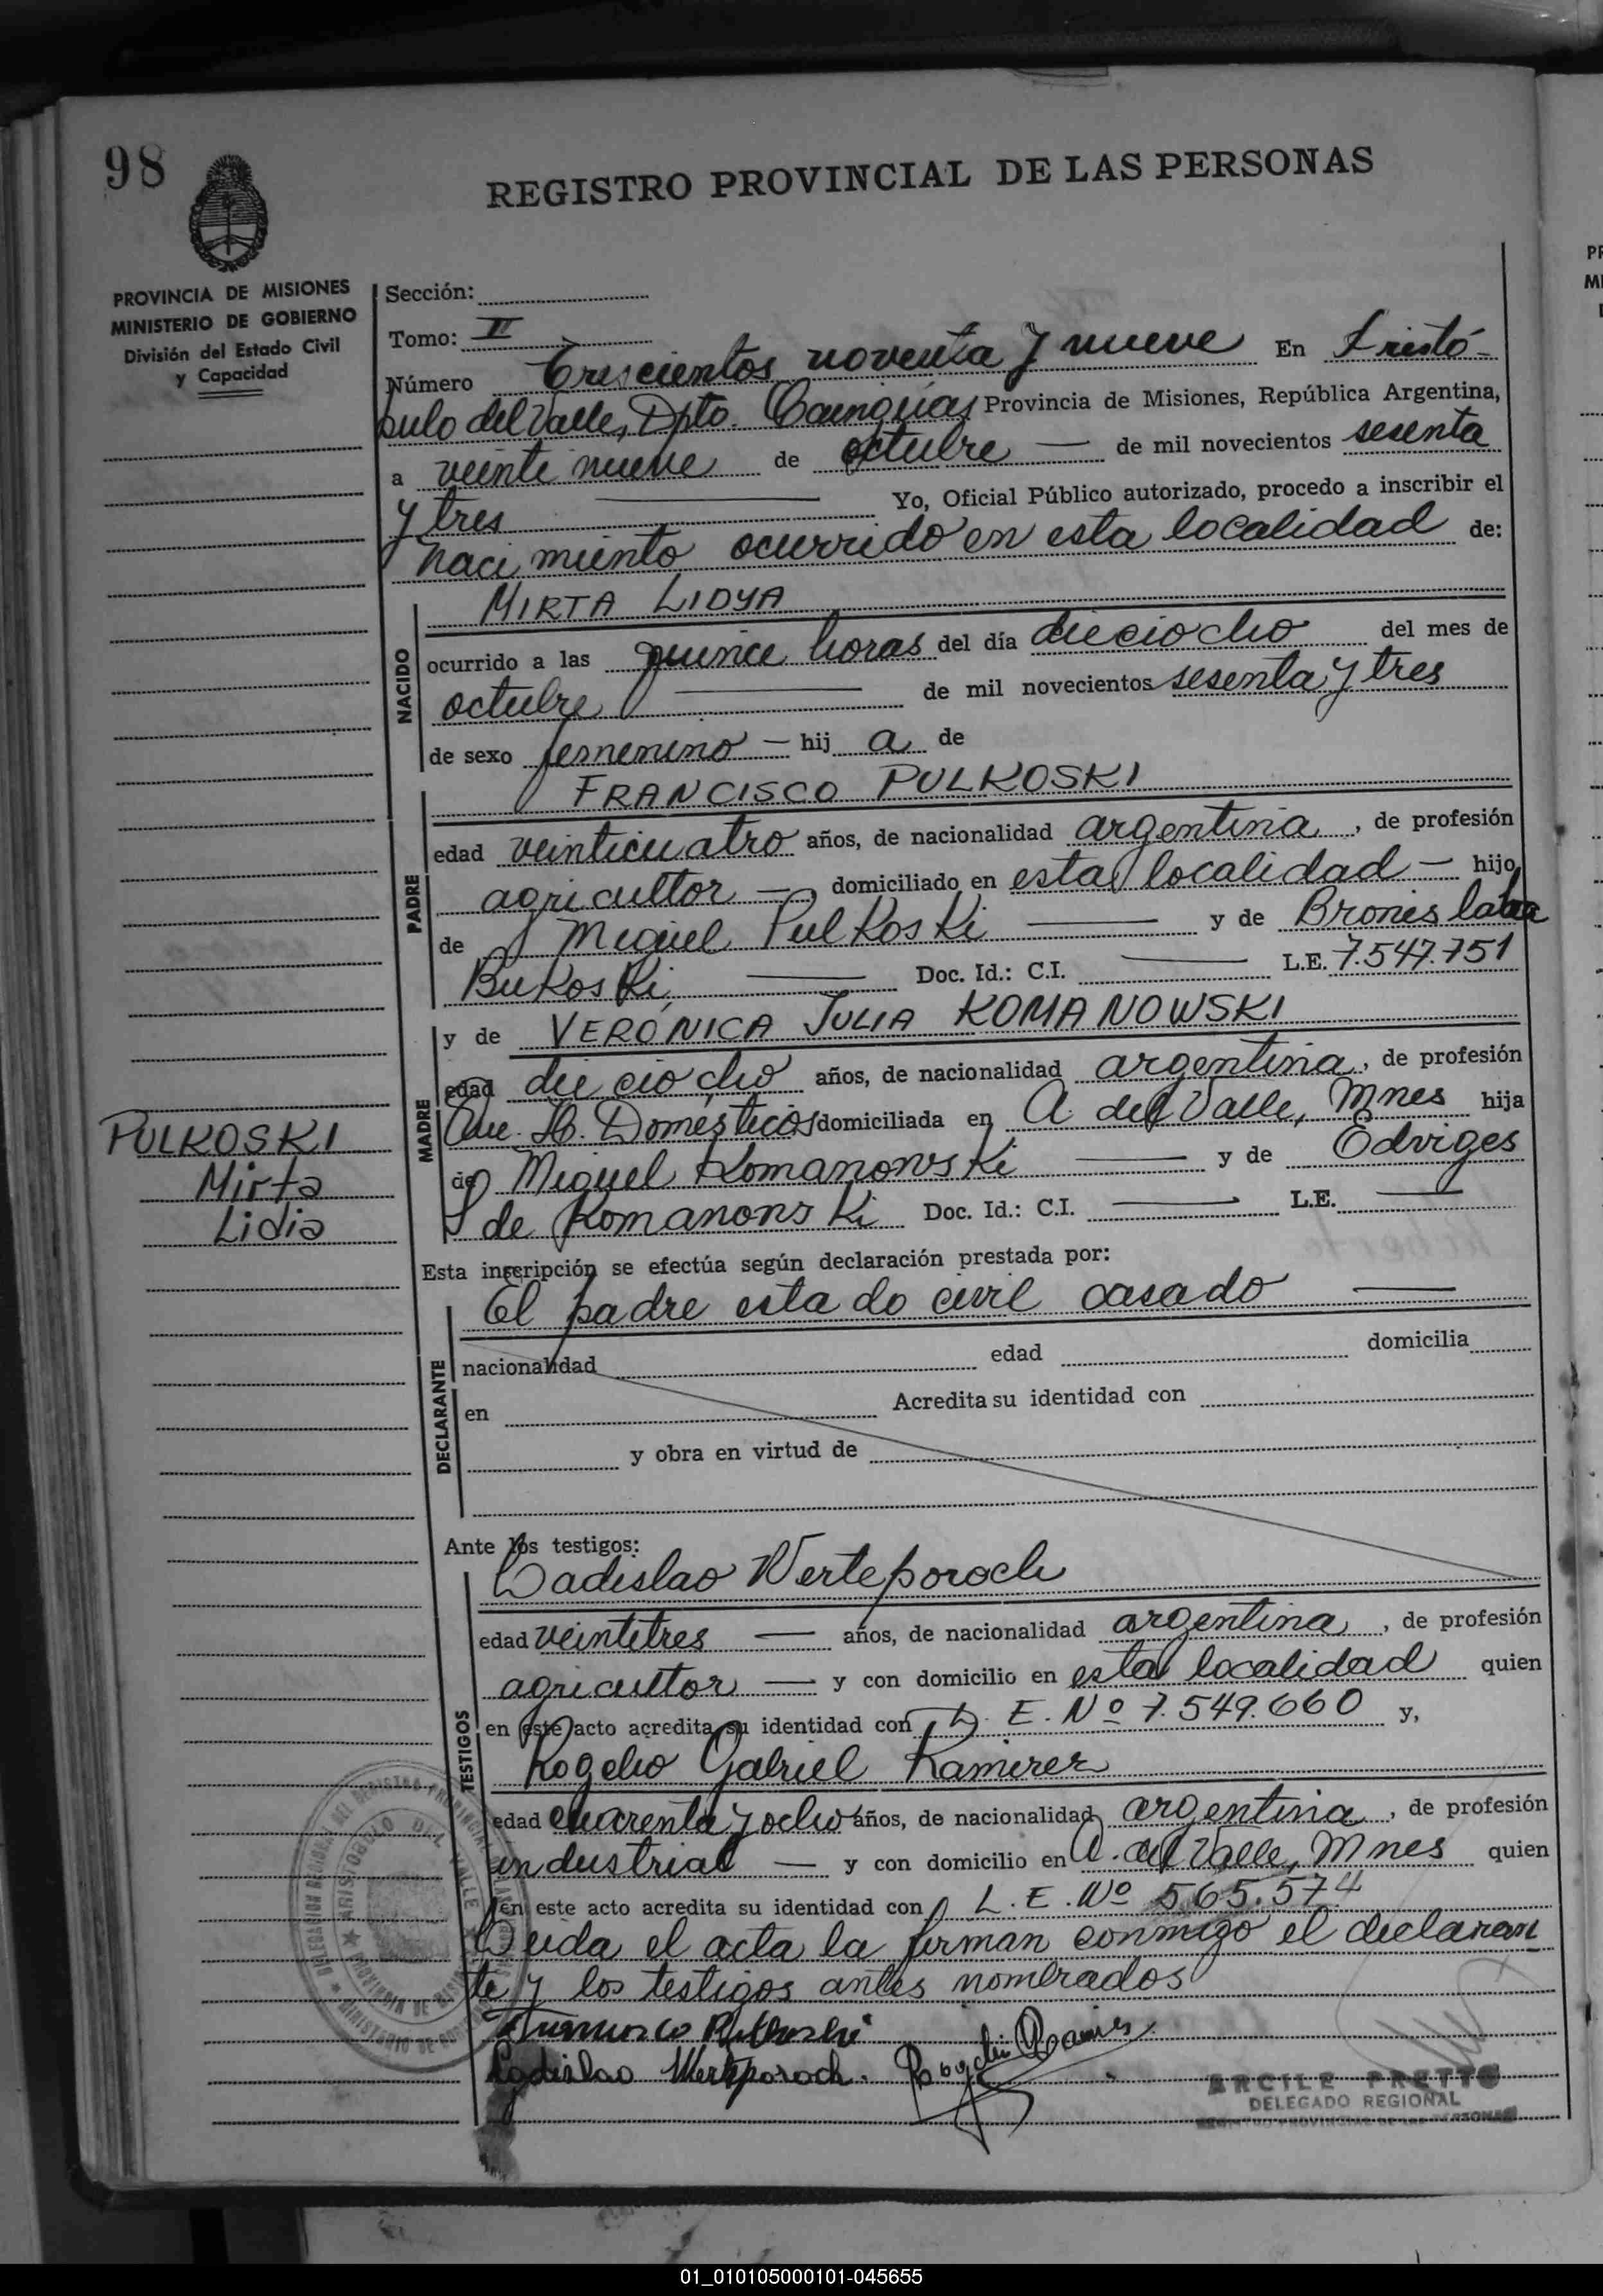 98
REGISTRO PROVINCIAL DE LAS PERSONAS
PROVINCIA DE MISIONES
MINISTERIO DE GOBIERNO
División del Estado Civil
y Capacidad
Sección:
Tomo: II
Número Trescientos noventa y nueve En Aristó-
bulo del Valle, Dpto. Cainguás Provincia de Misiones, República Argentina,
a veinte nueve de octubre — de mil novecientos sesenta
y tres — Yo, Oficial Público autorizado, procedo a inscribir el
nacimiento ocurrido en esta localidad de:
NACIDO
MIRTA LIDYA
ocurrido a las quince horas del día dieciocho del mes de
octubre — de mil novecientos sesenta y tres
de sexo femenino — hij a de
PADRE
FRANCISCO PULKOSKI
edad veinticuatro años, de nacionalidad argentina, de profesión
agricultor — domiciliado en esta localidad — hijo
de Miguel Pulkoski — y de Bronislava
Bukoski, — Doc. Id.: C.I. — L.E. 7.547.751
MADRE
y de VERÓNICA JULIA ROMANOWSKI
edad dieciocho años, de nacionalidad argentina, de profesión
Que. H. Domésticos domiciliada en A. del Valle, Mnes hija
de Miguel Romanowski — y de Edviges
S de Romanowski Doc. Id.: C.I. — L.E. —
PULKOSKI
Mirta
Lidia
Esta inscripción se efectúa según declaración prestada por:
DECLARANTE
El padre estado civil casado —
nacionalidad edad domicilia
en Acredita su identidad con
y obra en virtud de
Ante los testigos:
TESTIGOS
Ladislao Werteporoch
edad veintetres — años, de nacionalidad argentina, de profesión
agricultor — y con domicilio en esta localidad quien
en este acto acredita su identidad con L. E. Nº 7.549.660 y,
Rogelio Gabriel Ramirez
edad cuarenta y ocho años, de nacionalidad argentina, de profesión
industrial — y con domicilio en A. del Valle, Mnes quien
en este acto acredita su identidad con L. E. Nº 565.574
Leida el acta la firman conmigo el declaran
te y los testigos antes nombrados
Francisco Pulkoski
Ladislao Werteporoch. Rogelio Ramires
ARCILE PRETTO
DELEGADO REGIONAL
REGISTRO PROVINCIAL DE LAS PERSONAS
01_010105000101-045655